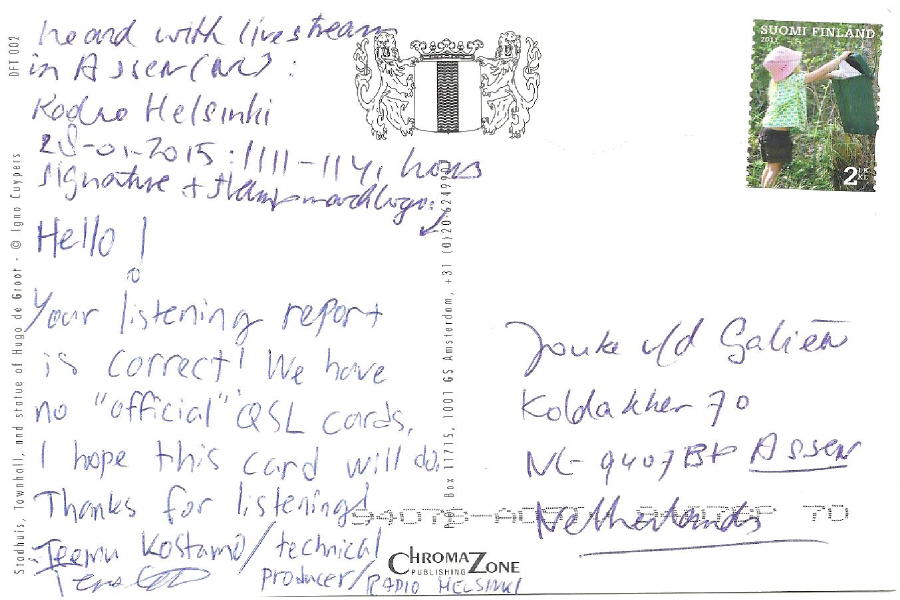 heard with livestream
in Assen (NL) :
Radio Helsinki
28-01-2015 : 1111-114, hours
signature + stamp and logo:
Hello !
Your listening report
is correct! We have
no "official" QSL cards,
I hope this card will do.
Thanks for listening!
Teemu Kostamo / technical
producer / RADIO HELSINKI
DFT 002
Stadhuis, Townhall, and statue of Hugo de Groot - © Igno Cuypers
Box 11715, 1001 GS Amsterdam, +31 (0)20 624990
CHROMAZONE
PUBLISHING
SUOMI FINLAND
2
Jouke v/d Galiën
Koldakker 70
NL- 9407BP Assen
Netherlands
70